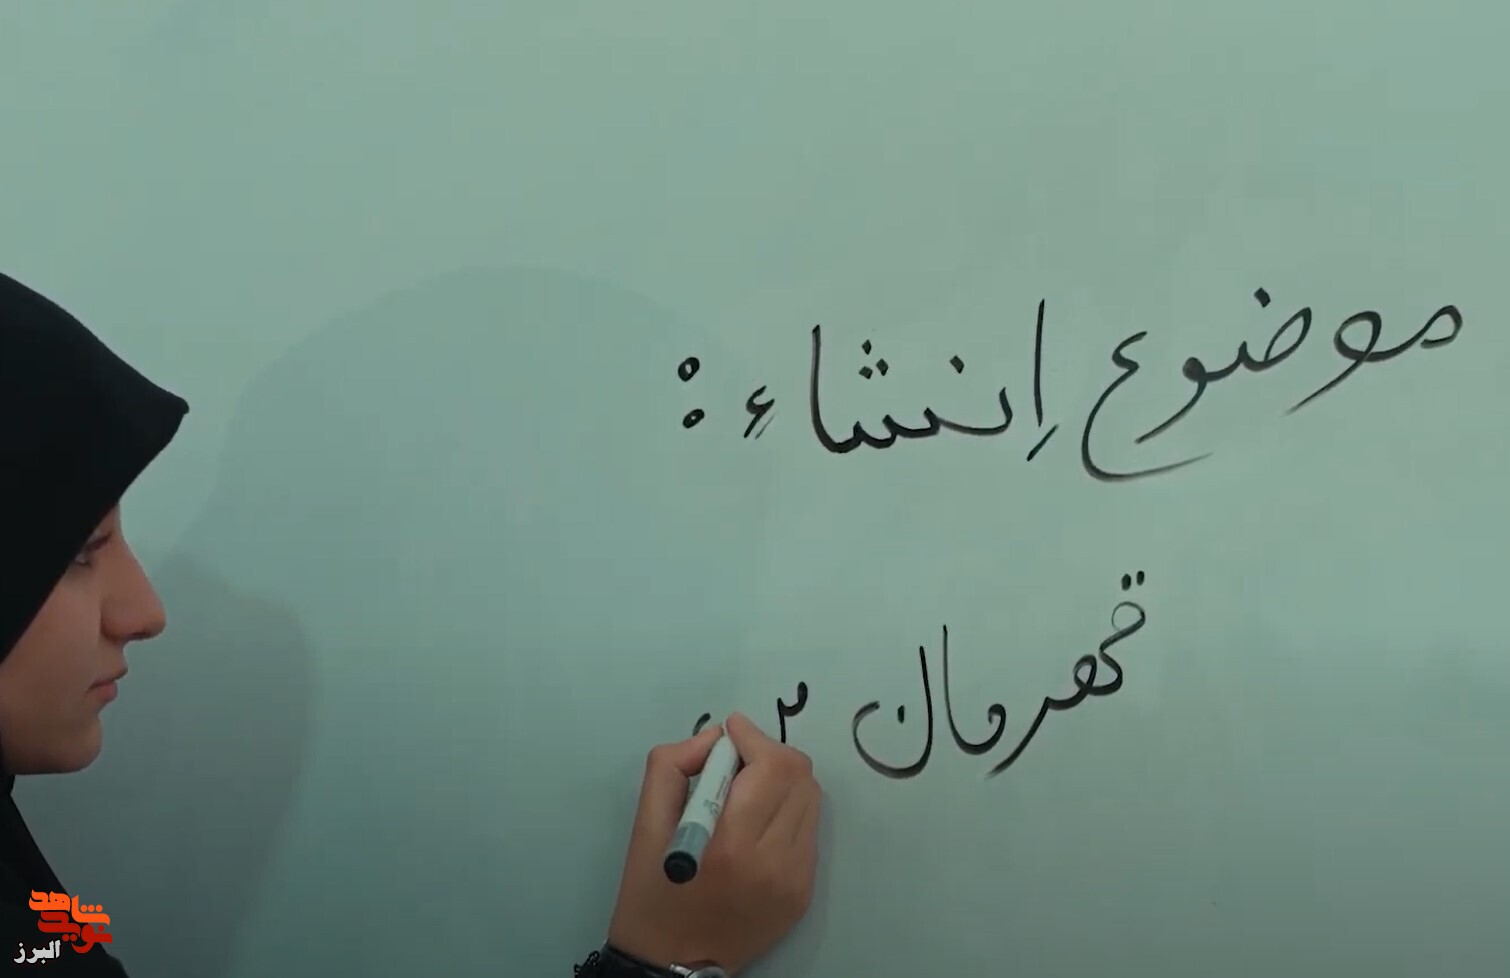 موضوع اِنشاءِ :
قهرمان م
نوید شاهد
البرز